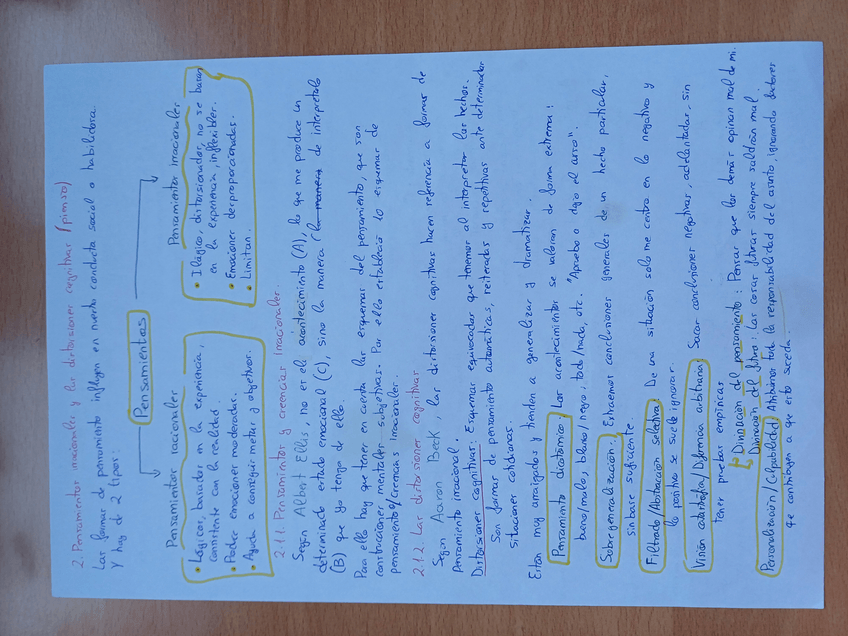 2. Pensamientos irracionales y las distorsiones cognitivas (pienso)
Las formas de pensamiento influyen en nuestra conducta social o habilidosa.
y hay de 2 tipos:
Pensamientos
Pensamientos racionales
• Lógicos, basados en la experiencia,
consistente con la realidad.
• Produce emociones moderadas.
• Ayuda a conseguir metas y objetivos.
Pensamientos irracionales
• Ilógico, distorsionados, no se basan
en la experiencia, inflexibles.
• Emociones desproporcionadas.
• Limitan.
2.1.1. Pensamientos y creencias irracionales.
Según Albert Ellis, no es el acontecimiento (A), lo que me produce un
determinado estado emocional (C), sino la manera de interpretarlo
(B) que yo tengo de ello.
Para ello hay que tener en cuenta los esquemas del pensamiento, que son
construcciones mentales subjetivas. Por ello estableció 10 esquemas de
pensamiento/creencias irracionales.
2.1.2. Las distorsiones cognitivas
Según Aaron Beck, las distorsiones cognitivas hacen referencia a formas de
pensamiento irracional.
Distorsiones cognitivas: Esquemas equivocados que tenemos al interpretar los hechos.
Son formas de pensamiento automáticas, reiteradas y repetitivas ante determinadas
situaciones cotidianas.
Están muy arraigados y tienden a generalizar y dramatizar.
Pensamiento dicotómico: Los acontecimientos se valoran de forma extrema:
bueno/malo, blanco/negro, todo/nada, etc. "Apruebo o dejo el curso".
Sobregeneralización: Extraemos conclusiones generales de un hecho particular,
sin base suficiente.
Filtrado/Abstracción selectiva: De una situación solo me centro en lo negativo y
lo positivo se suele ignorar.
Visión catastrófica/Diferencia arbitraria: Sacar conclusiones negativas, adelantadas, sin
tener pruebas empíricas
Divinación del pensamiento: Pensar que los demás opinan mal de mi.
Divinación del futuro: las cosas futuras siempre saldrán mal.
Personalización/Culpabilidad: Atribuirnos toda la responsabilidad del asunto, ignorando factores
qe contribuyen a que esto suceda.